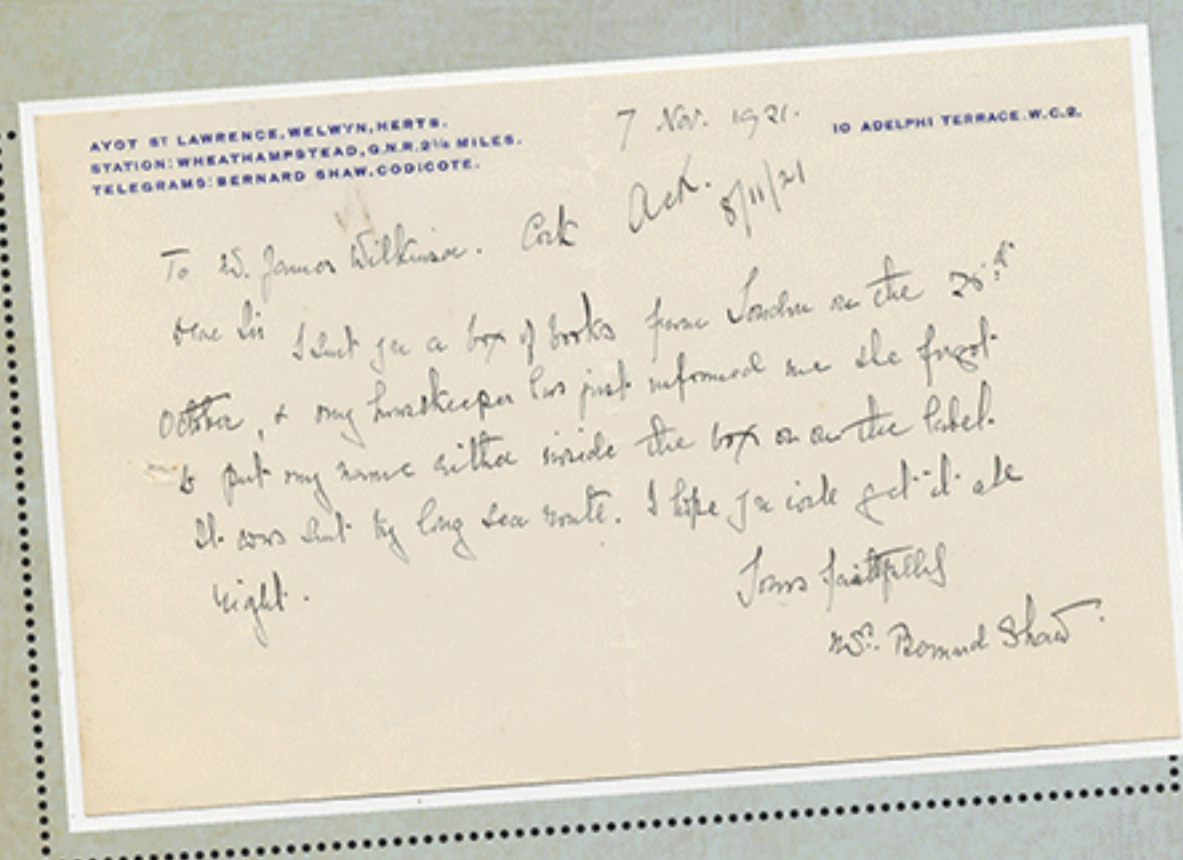 AYOT ST LAWRENCE, WELWYN, HERTS.
STATION: WHEATHAMPSTEAD, G.N.R. 2¼ MILES.
TELEGRAMS: BERNARD SHAW, CODICOTE.
7 Nov. 1921.
10 ADELPHI TERRACE. W.C.2.
Ack. 8/11/21
To W. James Wilkinson. Cork
Dear Sir I sent you a box of books from London on the
October, & my housekeeper has just informed me she forgot
to put my name either inside the box or on the label.
It was sent by long sea route. I hope you will get it all
right.
Yours faithfully
Mrs. Bernard Shaw.